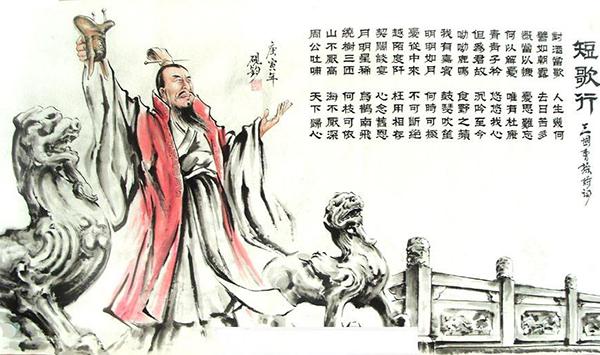 短歌行
對酒當歌 人生幾何
譬如朝露 去日苦多
慨當以慷 憂思難忘
何以解憂 唯有杜康
青青子衿 悠悠我心
但爲君故 沉吟至今
呦呦鹿鳴 食野之蘋
我有嘉賓 鼓瑟吹笙
明明如月 何時可掇
憂從中來 不可斷絕
越陌度阡 枉用相存
契闊談宴 心念舊恩
月明星稀 烏鵲南飛
繞樹三匝 何枝可依
山不厭高 海不厭深
周公吐哺 天下歸心
庚寅年